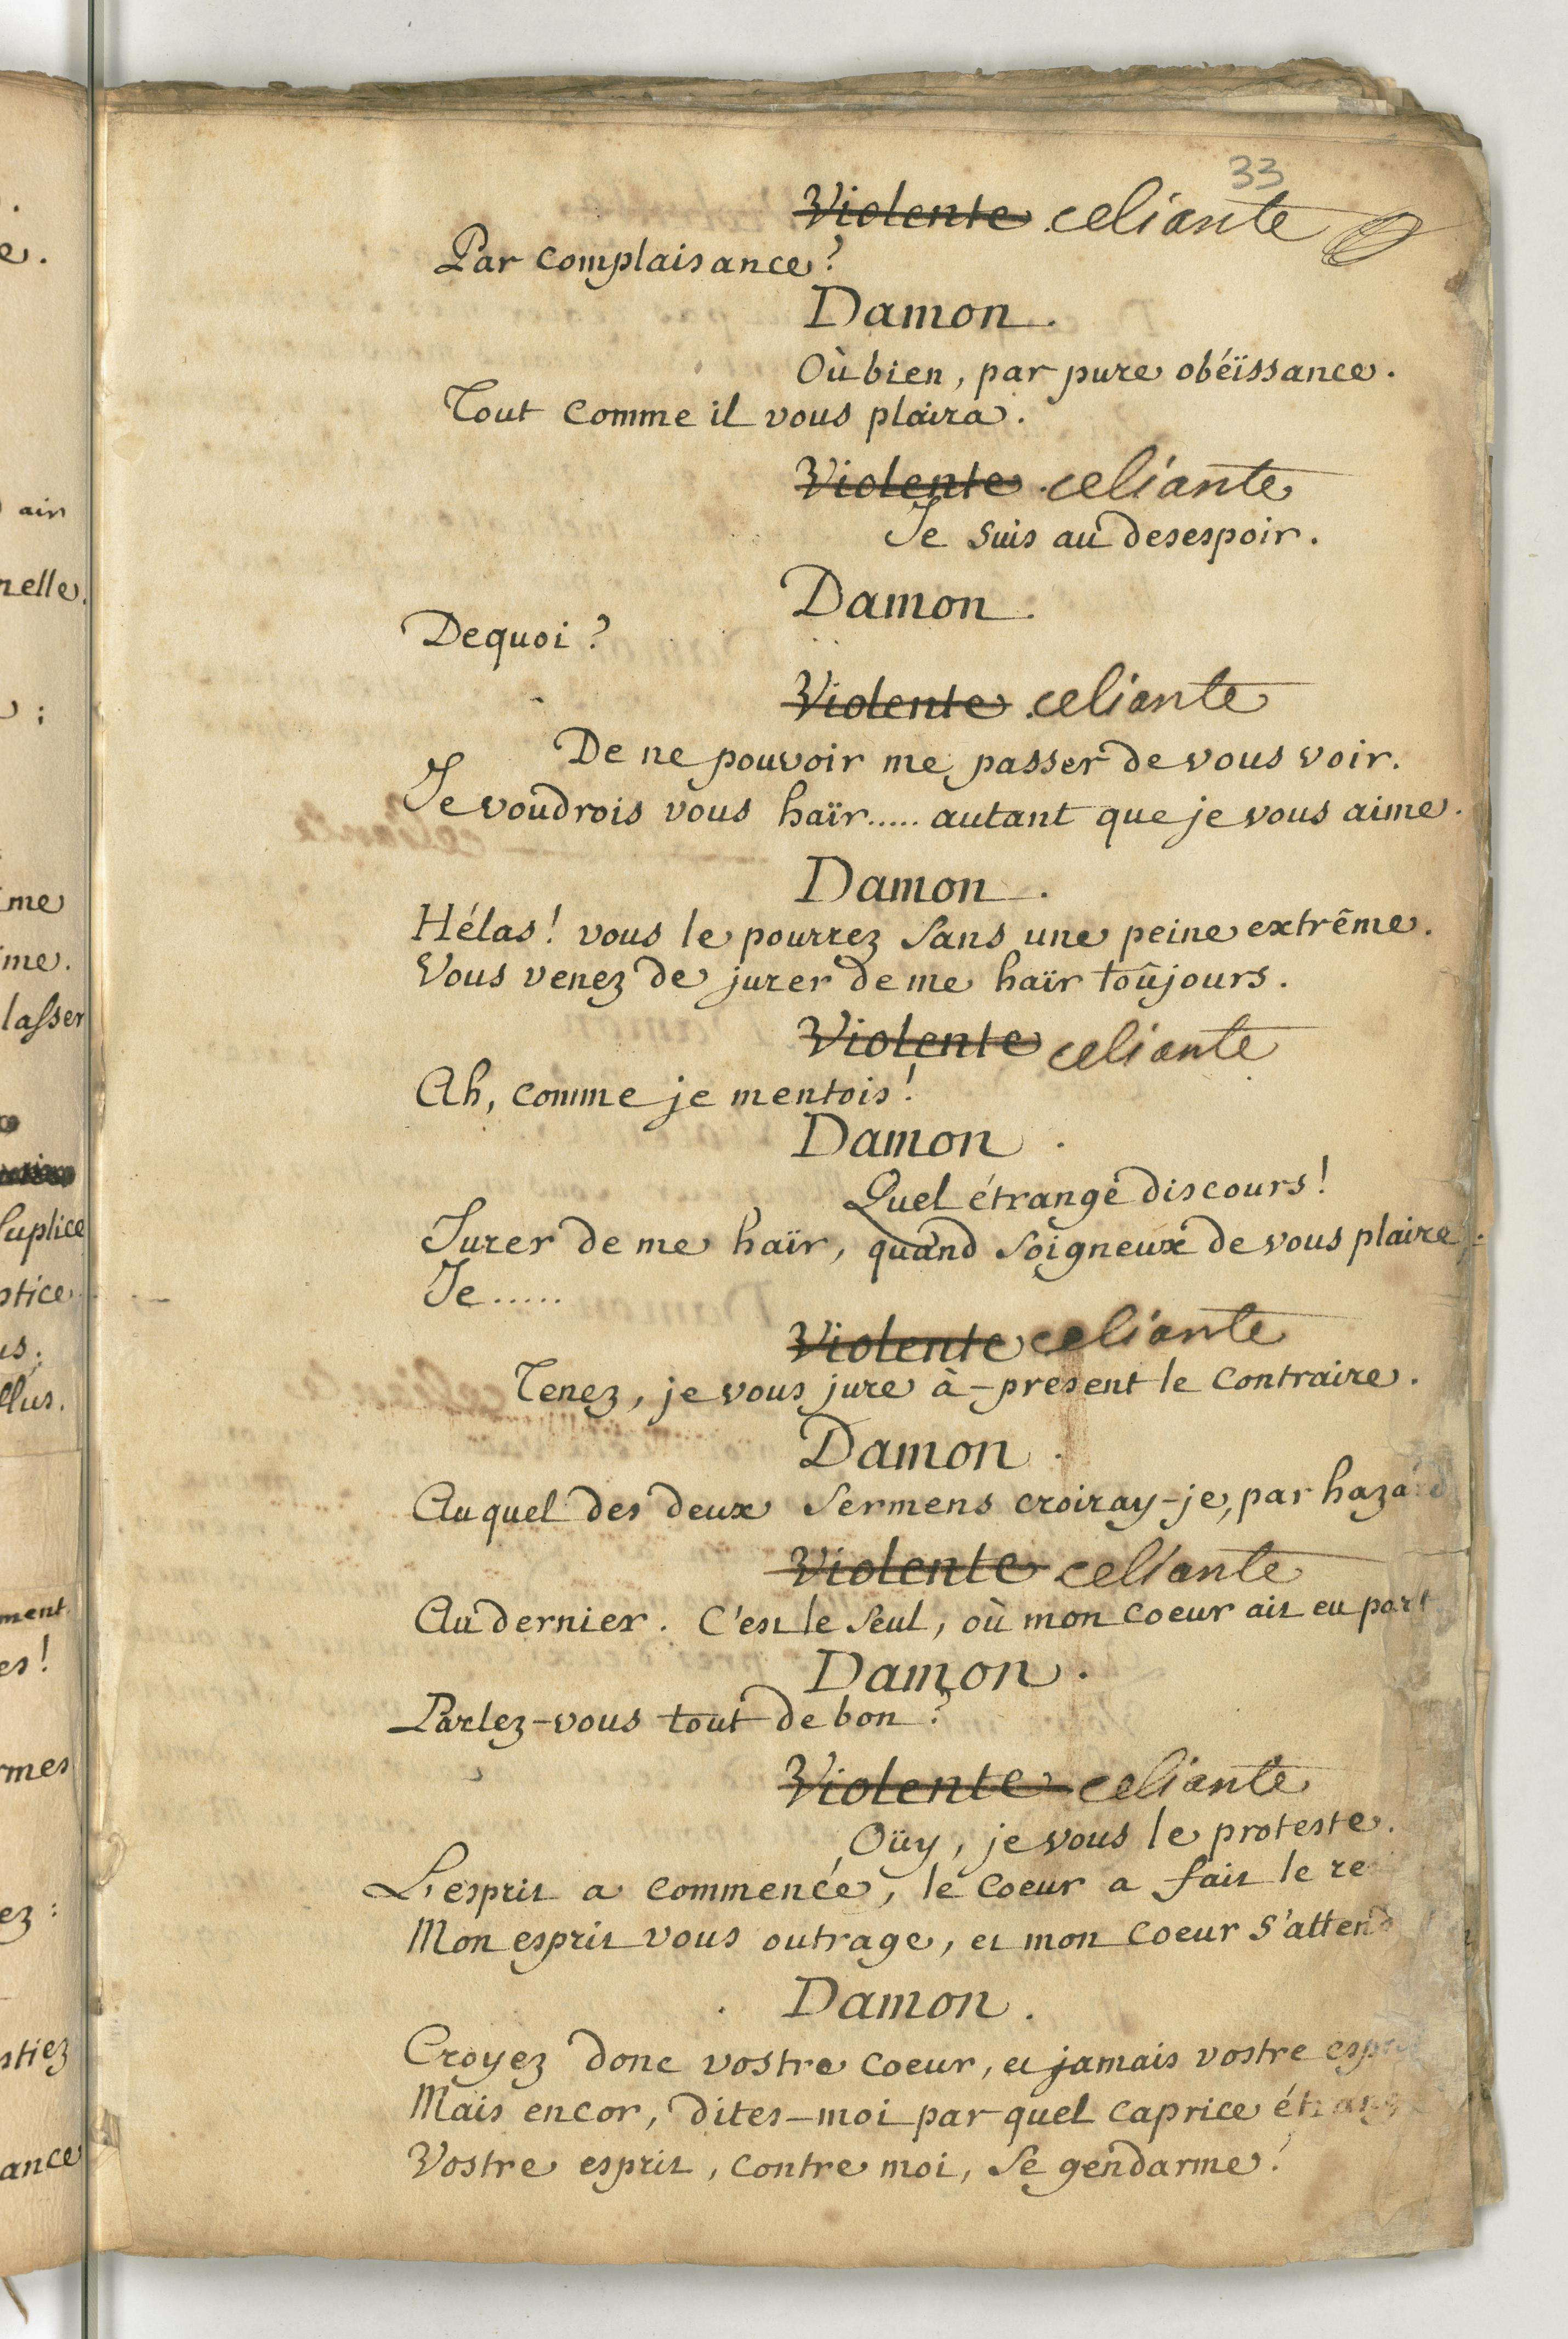 33
Violente celiante
Par complaisance?
Damon.
Où bien, par pure obéïssance.
Tout comme il vous plaira.
Violente celiante
Je suis au desespoir.
Damon.
Dequoi?
Violente celiante
De ne pouvoir me passer de vous voir.
Je voudrois vous haïr..... autant que je vous aime.
Damon.
Hélas! vous le pourrez sans une peine extrême.
Vous venez de jurer de me haïr toûjours.
Violente celiante
Ah, comme je mentois!
Damon.
Quel étrange discours!
Jurer de me haïr, quand soigneux de vous plaire,
Je.....
Violente celiante
Tenez, je vous jure à-present le contraire.
Damon.
Auquel des deux sermens croiray-je, par hazard
Violente celiante
Au dernier. C'est le seul, où mon coeur ait eu part
Damon.
Parlez-vous tout de bon?
Violente celiante
Oüy, je vous le proteste.
L'esprit a commencé, le coeur a fait le re
Mon esprit vous outrage, et mon coeur s'attend
Damon.
Croyez donc vostre coeur, et jamais vostre esprit
Mais encor, dites-moi par quel caprice étrang
Vostre esprit, contre moi, se gendarme?
e.
air
nelle.
me
ime.
lasser
suplice
stice
us;
llus.
ment
es!
rmes
ez:
stiez
ance